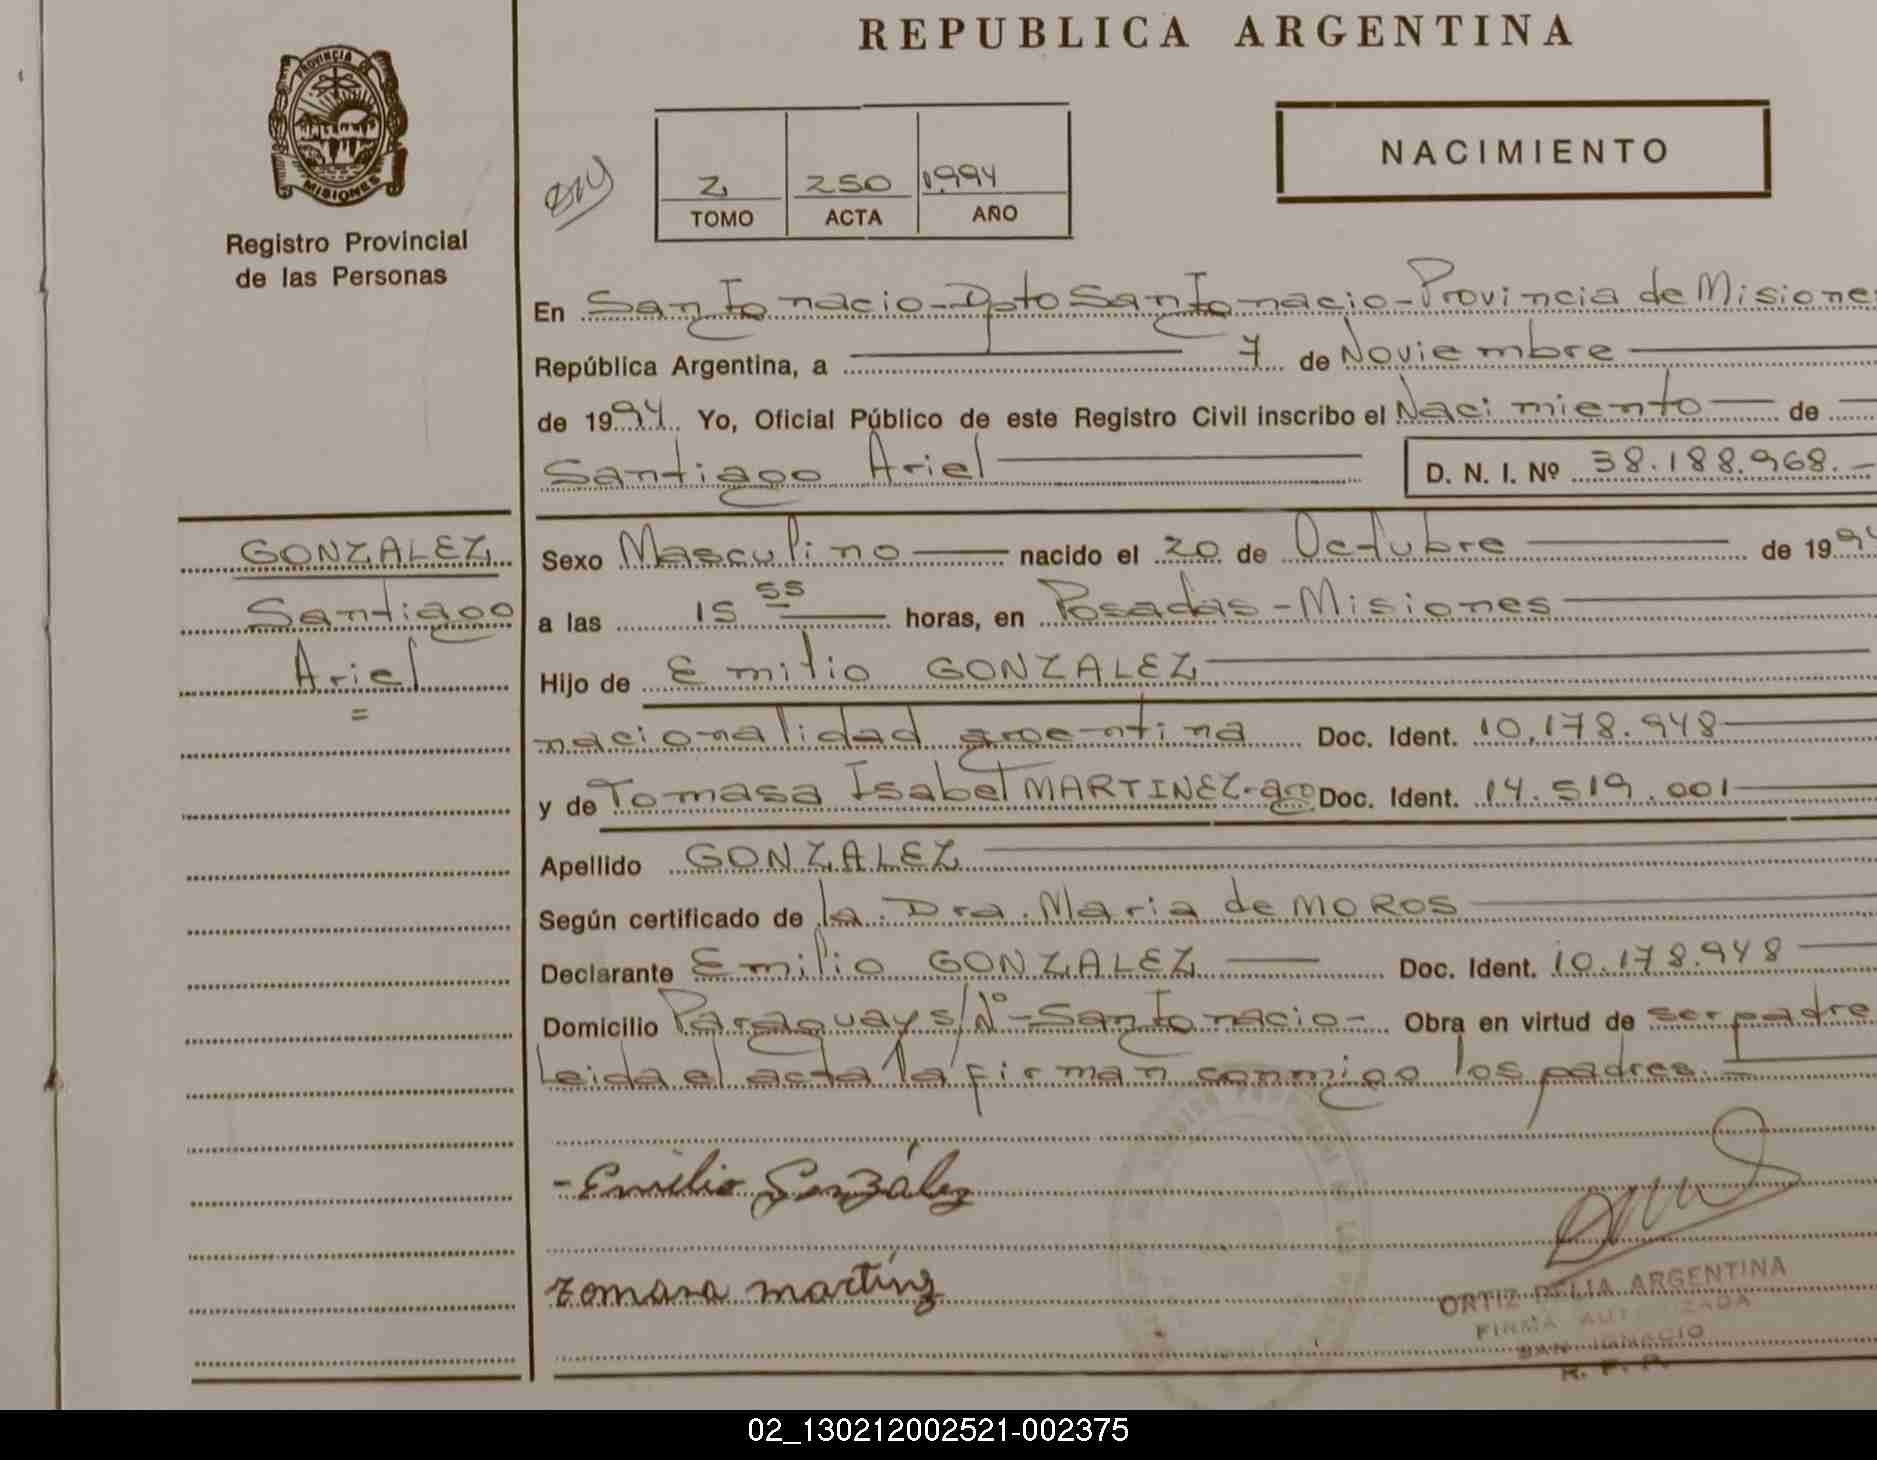 REPUBLICA ARGENTINA
PROVINCIA DE
MISIONES
Registro Provincial
de las Personas
2 250 1994
TOMO ACTA AÑO
NACIMIENTO
En San Ignacio - Dpto San Ignacio - Provincia de Misiones
República Argentina, a 7 de Noviembre
de 1994 Yo, Oficial Público de este Registro Civil inscribo el Nacimiento de
Santiago Ariel D. N. I. Nº 38.188.968.-
GONZALEZ
Santiago
Ariel
=
Sexo Masculino nacido el 20 de Octubre de 1994
a las 15 55 horas, en Posadas - Misiones
Hijo de Emilio GONZALEZ
nacionalidad argentina Doc. Ident. 10.178.948
y de Tomasa Isabel MARTINEZ - arg Doc. Ident. 14.519.001
Apellido GONZALEZ
Según certificado de la Dra. Maria de MOROS
Declarante Emilio GONZALEZ Doc. Ident. 10.178.948
Domicilio Paraguay s/Nº - San Ignacio - Obra en virtud de ser padre
Leida el acta la firman conmigo los padres. -
- Emilio González
tomasa martínz
ORTIZ DELIA ARGENTINA
FIRMA AUTORIZADA
SAN IGNACIO
R. P. P.
02_130212002521-002375